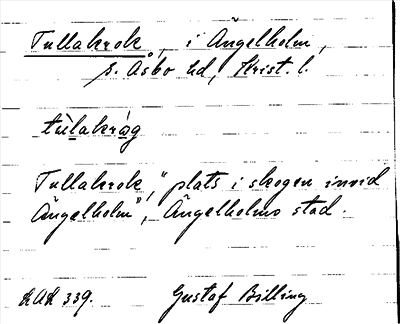 Tullakrok, i Ängelholm,
s. Åsbo hd, Krist. l.
Tullakrok, "plats i skogen invid
Ängelholm", Ängelholms stad.
LAL 339. Gustaf Billing